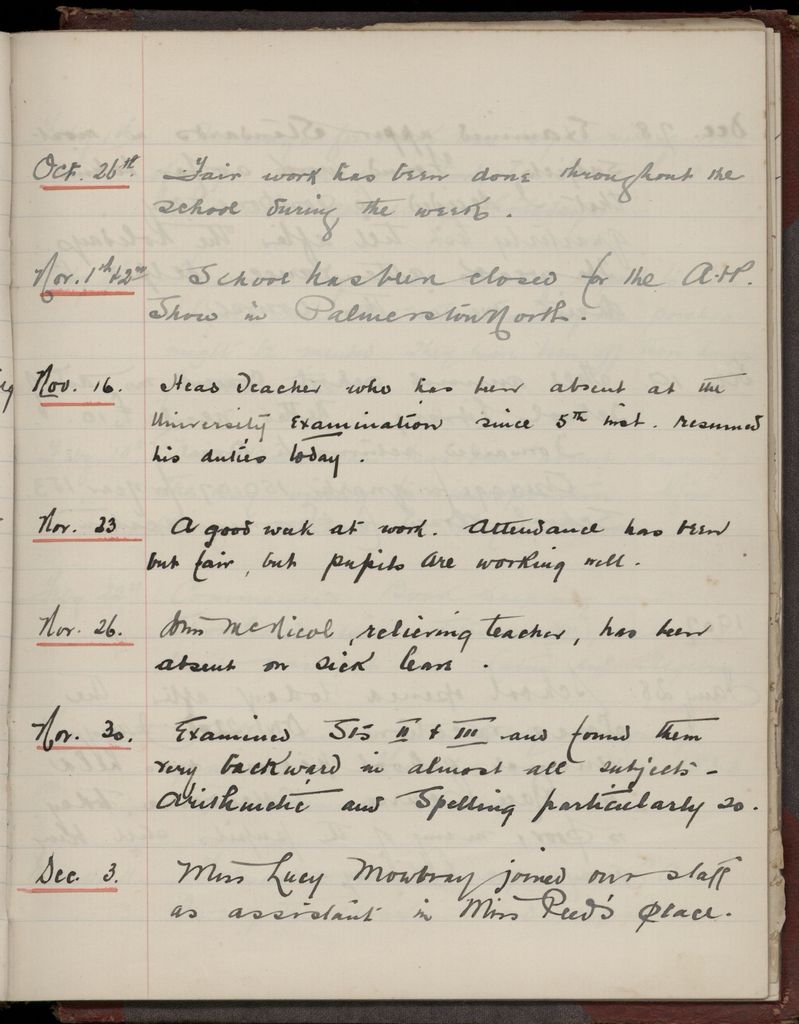 Oct. 26th. Fair work has been done throughout the
school during the week.
Nov. 1st & 2nd School has been closed for the A. & P.
Show in Palmerston North.
Nov. 16. Head Teacher who has been absent at the
University Examination since 5th inst. resumed
his duties today.
Nov. 23 A good week at work. Attendance has been
but fair, but pupils are working well.
Nov. 26. Miss McNicol, relieving teacher, has been
absent on sick leave.
Nov. 30. Examined Sts II & III and found them
very backward in almost all subjects -
Arithmetic and Spelling particularly so.
Dec. 3. Miss Lucy Mowbray joined our staff
as assistant in Miss Reed's place.